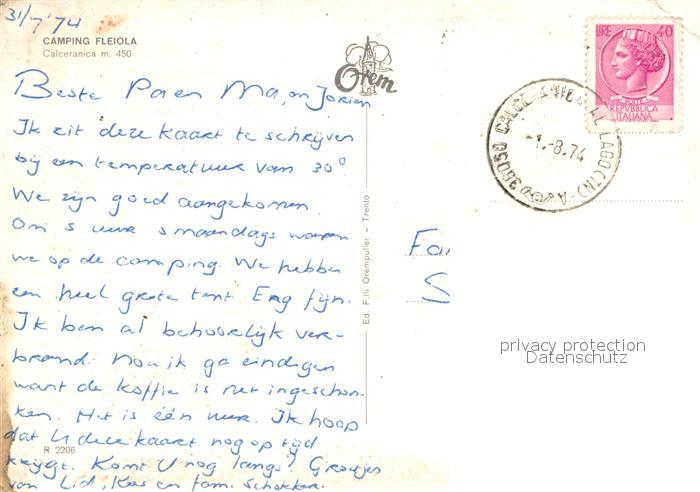 31/7'74
CAMPING FLEIOLA
Calceranica m. 450
Orem
Beste Pa en Ma, en Jorien
Ik zit deze kaart te schrijven
bij een temperatuur van 30°
We zijn goed aangekomen.
Om 5 uur s maandags waren
we op de camping. We hebben
een heel grote tent. Erg fijn.
Ik ben al behoorlijk ver-
brand. Nou ik ga eindigen
want de koffie is net ingeschon-
ken. Het is één uur. Ik hoop
dat U deze kaart nog op tijd
krijgt. Komt U nog langs? Groetjes
van Lid, Kees en fam. Schokker.
R 2206
Ed. F.lli Orempuller - Trento
LIRE 40
POSTE
REPVBBLICA
ITALIANA
38050 CALCERANICA AL LAGO (TN)
-1.-8.74
Fa
S
privacy protection
Datenschutz